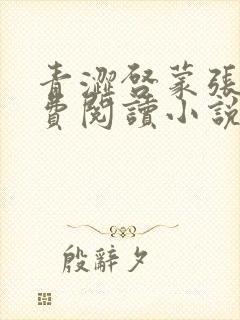 青澀啓蒙張
費閱讀小說
殷辭夕